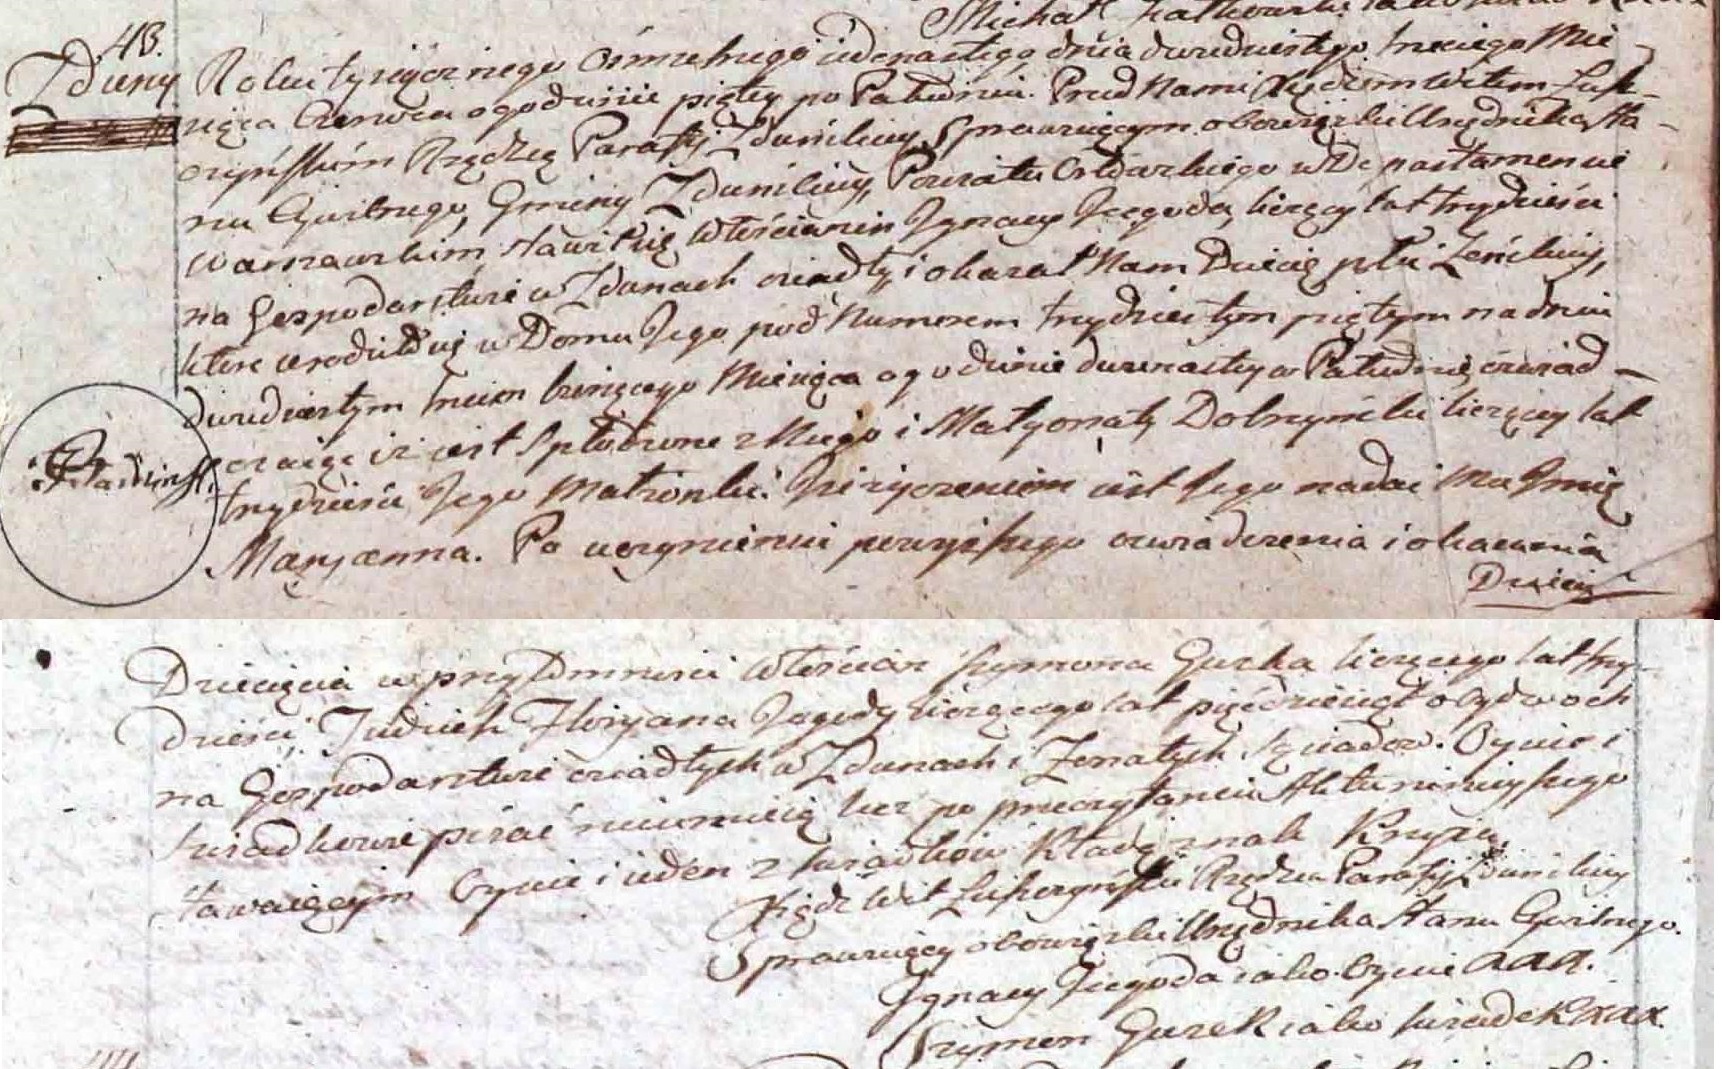 Michał
43.
Zduny
Roku tysiącznego osmsetnego iedenastego dnia dwudziestego trzeciego Mie
siąca Czerwca o godzinie piątey po Południu. Przed Nami Xiędzem Witem
Rządzcą Parafij Zduńskiey, Sprawuiącym obowiązki Urzędnika Sta
nu Cywilnego, Gminy Zduńskiey, Powiatu Orłowskiego w Departamencie
Warszawskim stawił się Włościanin Jgnacy Jegoda, liczący lat trzydzieści
na Gospodarstwie w Zdunach osiadły, i okazał Nam Dziecię płci Zeńskiey,
ktore urodziło się w Domu Jego pod Numerem trzydziestym piątym na dniu
dwudziestym trzecim bieżącego Miesiąca o godzinie dwunastey w Południe, oswiad-
czaiąc iż iest spłodzone z Niego i Małgorzaty Dolnyńskiey liczącey lat
trzydzieści Jego Małżonki. Jż życzeniem iest Jego nadać Mu Jmię
Maryanna. Po uczynieniu powyższego oswiadczenia i okazania
Dziecię
Dziecięcia w przytomności Włościan Szymona Gurka liczącego lat trzy-
dzieści, Tudzież Floryana Jegody liczącego lat pięćdziesiąt obydwoch
na Gospodarstwie osiadłych w Zdunach i Żonatych Sąsiadow. Oyciec i
Swiadkowie pisać nieumieią lecz po przeczytaniu Aktu ninieyszego
stawaiącym Oyciec i ieden z Swiadkow Kładą znak Krzyża.
Xiądz Wit Rządzca Parafij Zduńskiey
Sprawuiący obowiązki Urzędnika Stanu Cywilnego.
Jgnacy Jegoda iako Oyciec xxx.
Szymon Gurek iako Swiadek xxx.